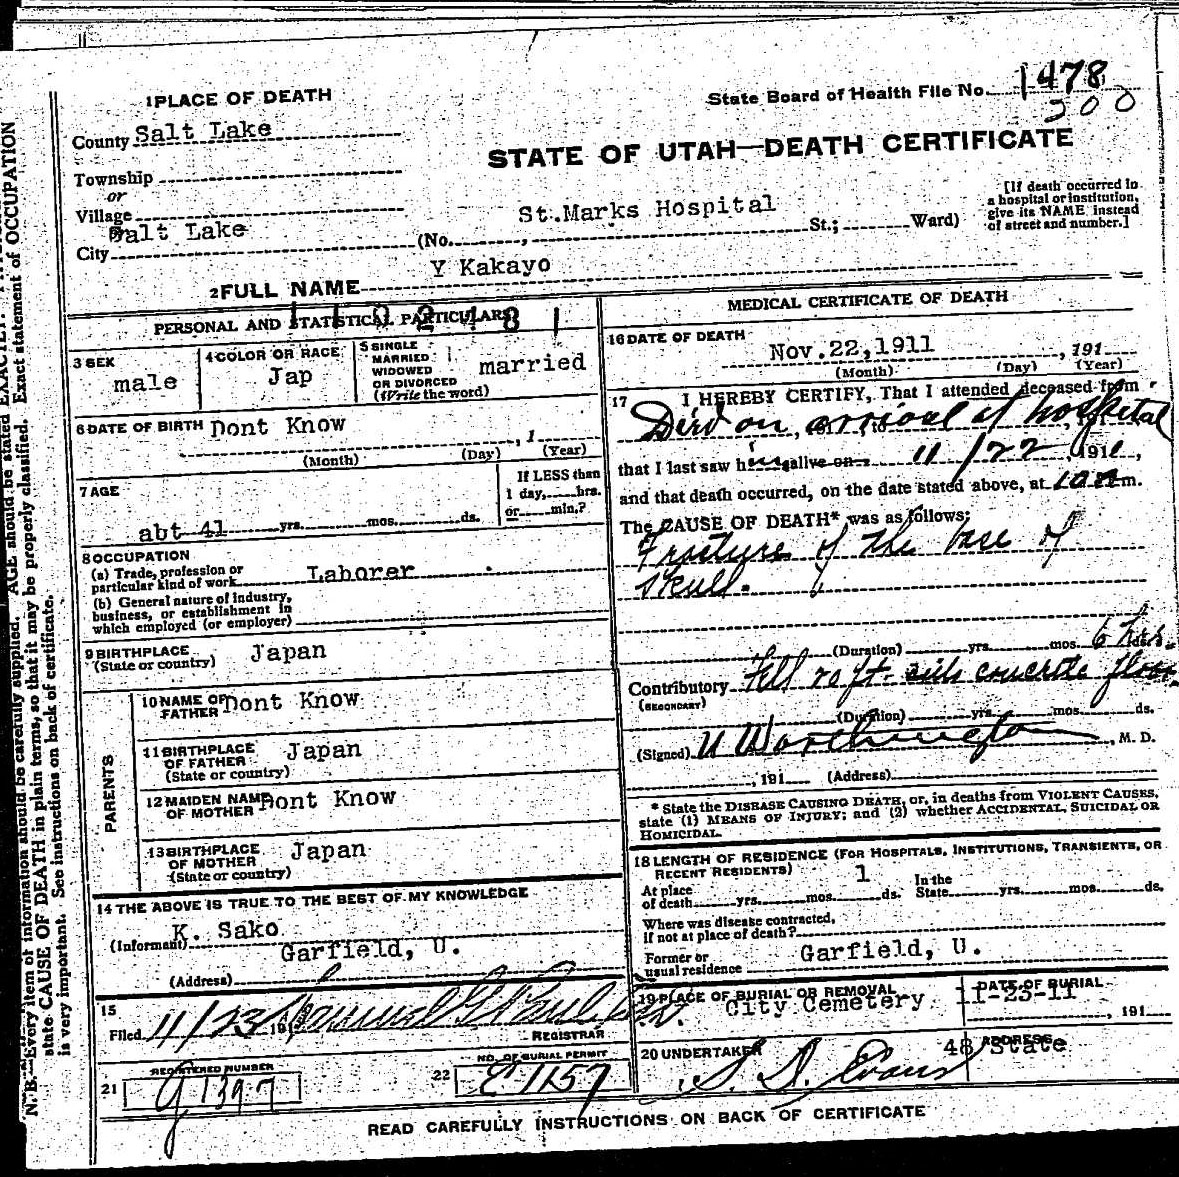 1 PLACE OF DEATH
State Board of Health File No. 1478
200
County Salt Lake
STATE OF UTAH—DEATH CERTIFICATE
Township
or
Village
City Salt Lake (No. , St.Marks Hospital St.; Ward)
[If death occurred in
a hospital or institution,
give its NAME instead
of street and number.]
2 FULL NAME Y Kakayo
PERSONAL AND STATISTICAL PARTICULARS
3 SEX
male
4 COLOR OR RACE
Jap
5 SINGLE
MARRIED
WIDOWED
OR DIVORCED
(Write the word)
married
6 DATE OF BIRTH Dont Know , 1
(Month) (Day) (Year)
7 AGE
abt 41 yrs. mos. ds.
If LESS than
1 day, hrs.
or min.?
8 OCCUPATION
(a) Trade, profession or
particular kind of work Laborer
(b) General nature of industry,
business, or establishment in
which employed (or employer)
9 BIRTHPLACE
(State or country) Japan
PARENTS
10 NAME OF
FATHER Dont Know
11 BIRTHPLACE
OF FATHER
(State or country) Japan
12 MAIDEN NAME
OF MOTHER Dont Know
13 BIRTHPLACE
OF MOTHER
(State or country) Japan
14 THE ABOVE IS TRUE TO THE BEST OF MY KNOWLEDGE
(Informant) K. Sako
(Address) Garfield, U.
15
Filed 11/23 191
REGISTRAR
21 REGISTERED NUMBER
G 1397
22 NO. OF BURIAL PERMIT
E 1157
MEDICAL CERTIFICATE OF DEATH
16 DATE OF DEATH
Nov.22,1911 , 191
(Month) (Day) (Year)
17 I HEREBY CERTIFY, That I attended deceased from
Died on arrival at hospital
that I last saw him alive on 11/22 1911,
and that death occurred, on the date stated above, at 10 m.
The CAUSE OF DEATH* was as follows:
Fracture of the base of
skull.
(Duration) yrs. mos. 6 hrs.
Contributory Fell 20 ft. concrete floor
(SECONDARY)
(Duration) yrs. mos. ds.
(Signed) U Worthington, M. D.
, 191 (Address)
* State the DISEASE CAUSING DEATH, or, in deaths from VIOLENT CAUSES,
state (1) MEANS OF INJURY; and (2) whether ACCIDENTAL, SUICIDAL OR
HOMICIDAL.
18 LENGTH OF RESIDENCE (FOR HOSPITALS, INSTITUTIONS, TRANSIENTS, OR
RECENT RESIDENTS)
At place
of death yrs. mos. 1 ds. In the
State yrs. mos. ds.
Where was disease contracted,
if not at place of death?
Former or
usual residence Garfield, U.
19 PLACE OF BURIAL OR REMOVAL
City Cemetery
DATE OF BURIAL
11-23-11 , 191
20 UNDERTAKER
S. D. Evans
ADDRESS
48 State
READ CAREFULLY INSTRUCTIONS ON BACK OF CERTIFICATE
N. B.—Every item of information should be carefully supplied. AGE should be stated EXACTLY.
state CAUSE OF DEATH in plain terms, so that it may be properly classified. Exact statement of OCCUPATION
is very important. See instructions on back of certificate.